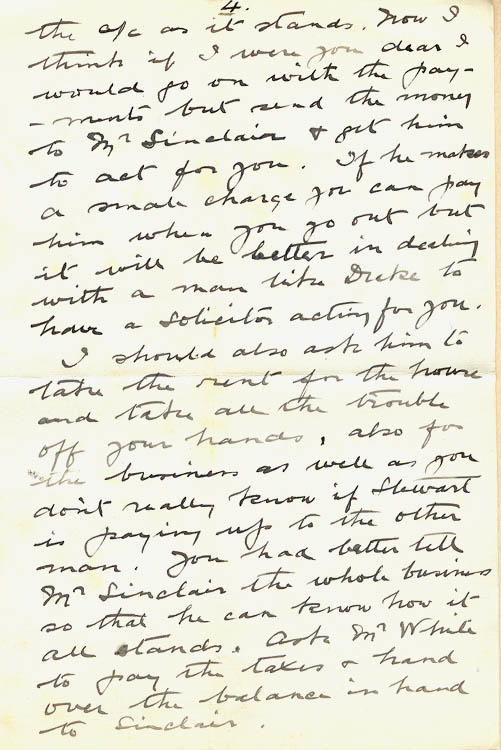 4.
the a/c as it stands. Now I
think if I were you dear I
would go on with the pay-
-ments but send the money
to Mr Sinclair & get him
to act for you. If he makes
a small charge you can pay
him when you go out but
it will be better in dealing
with a man like Drake to
have a solicitor acting for you.
I should also ask him to
take the rent for the house
and take all the trouble
off your hands, also for
the business as well as you
don't really know if Stewart
is paying up to the other
man. You had better tell
Mr Sinclair the whole business
so that he can know how it
all stands. Ask Mr White
to pay the taxes & hand
over the balance in hand
to Sinclair.